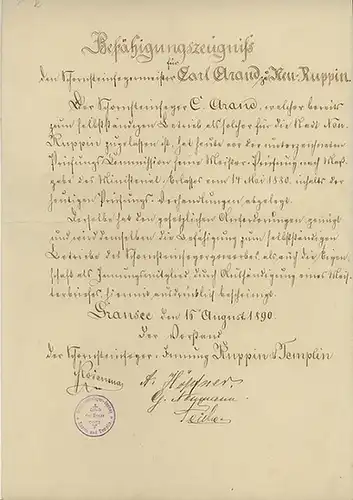 Befähigungszeugniß
für
den Schornsteinfegermeister Carl Arand zu Neu-Ruppin.
Der Schornsteinfeger C. Arand, welcher bereits
zum selbstständigen Betrieb als solcher für die Stadt Neu-
Ruppin zugelassen ist, hat heute vor der unterzeichneten
Prüfungs-Commission seine Meister-Prüfung nach Maß-
gabe des Ministerial-Erlasses vom 14 Mai 1880, inhalts der
heutigen Prüfungs-Verhandlungen abgelegt.
Derselbe hat den gesetzlichen Anforderungen genügt
und wird demselben die Befähigung zum selbstständigen
Betriebe des Schornsteinfegergewerbes, als auch die Eigen-
schaft als Innungsmitglied, durch Aushändigung eines Meis-
terbriefes, hiermit ausdrücklich bescheinigt.
Gransee, den 15 August 1890.
Der Vorstand
der Schornsteinfeger-Innung Ruppin & Templin
A. Höppner.
G. Neumann